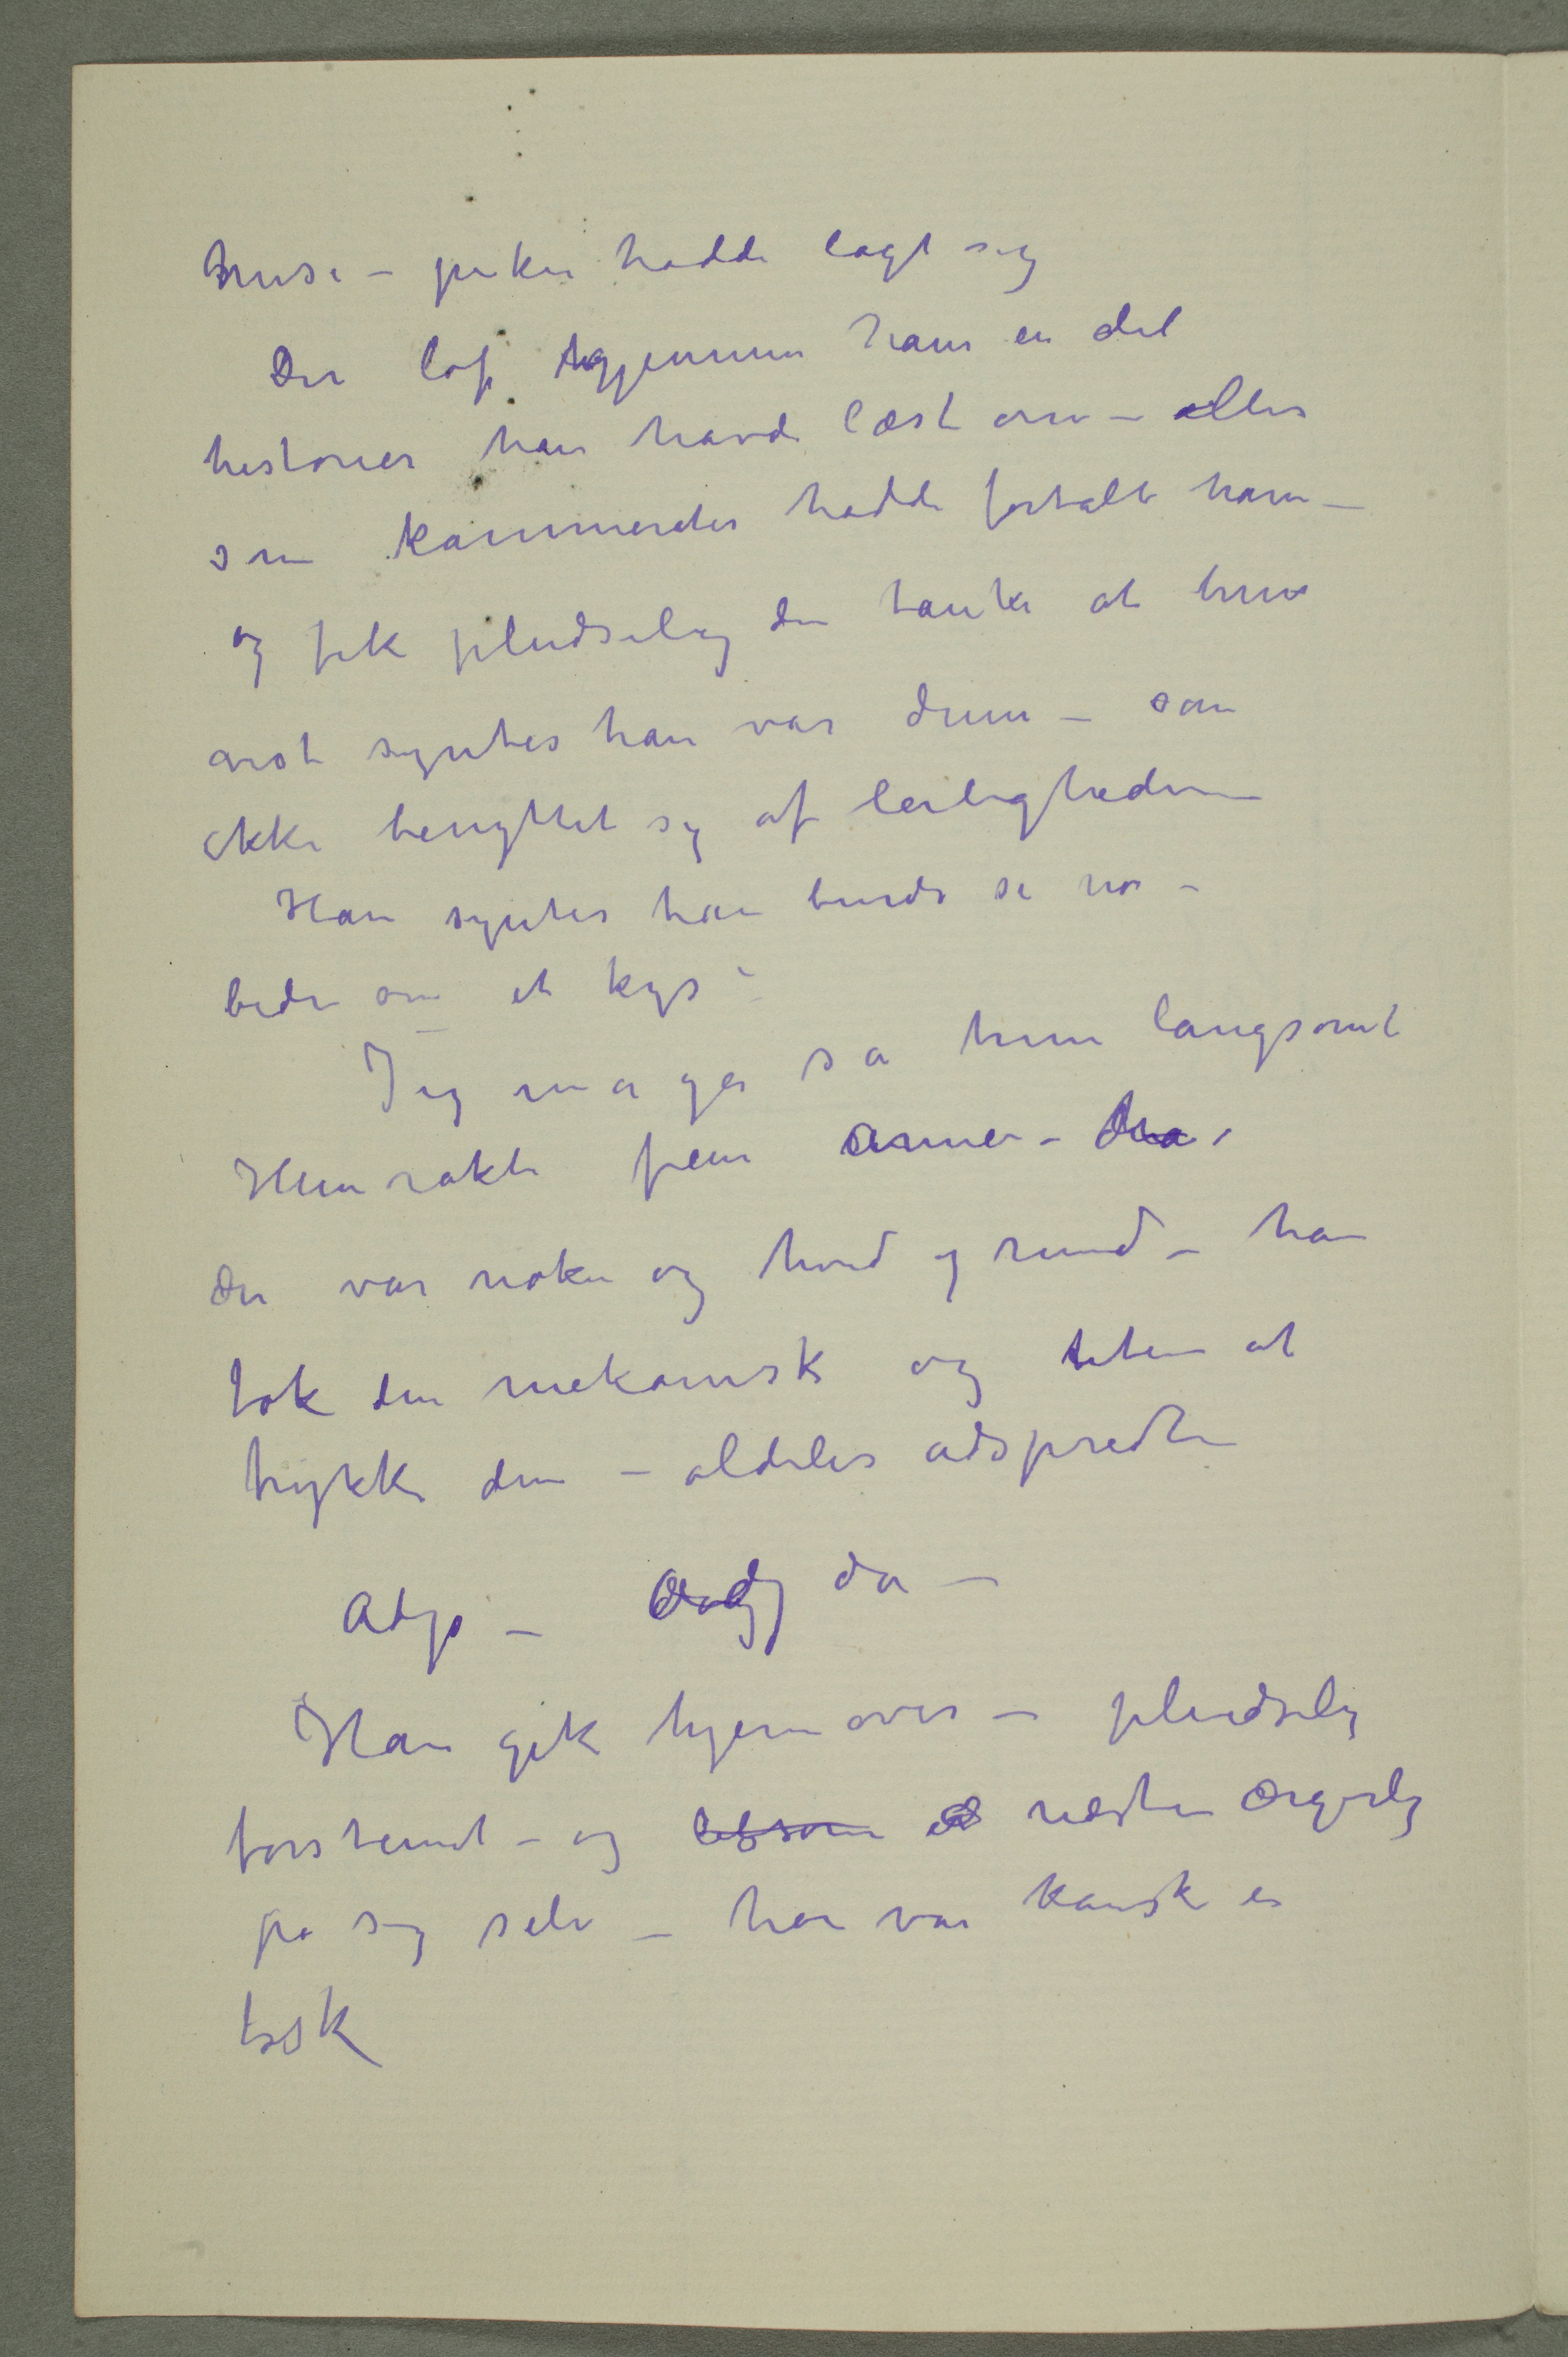 huse – piken hadde lagt sig
Der løp gjennem ham en del
historier han havde læst om – eller
som kammerater hadde fortalt ham –
og fik pludselig den tanke at hun
vist syntes han var dum – som
ikke benyttet sig af leiligheden
Han syntes han burde si no –
bede om et kys –
Jeg må gå sa hun langsomt
Hun rakte frem armen –
den var nøken og hvid og rund – han
tok den mekanisk og uten at
trykke den – aldeles adspredt
Adjø – da –
Han gik hjemover – pludselig
forstemt – og ligesom næsten ærgerlig
på sig selv – han var kanske en
tosk